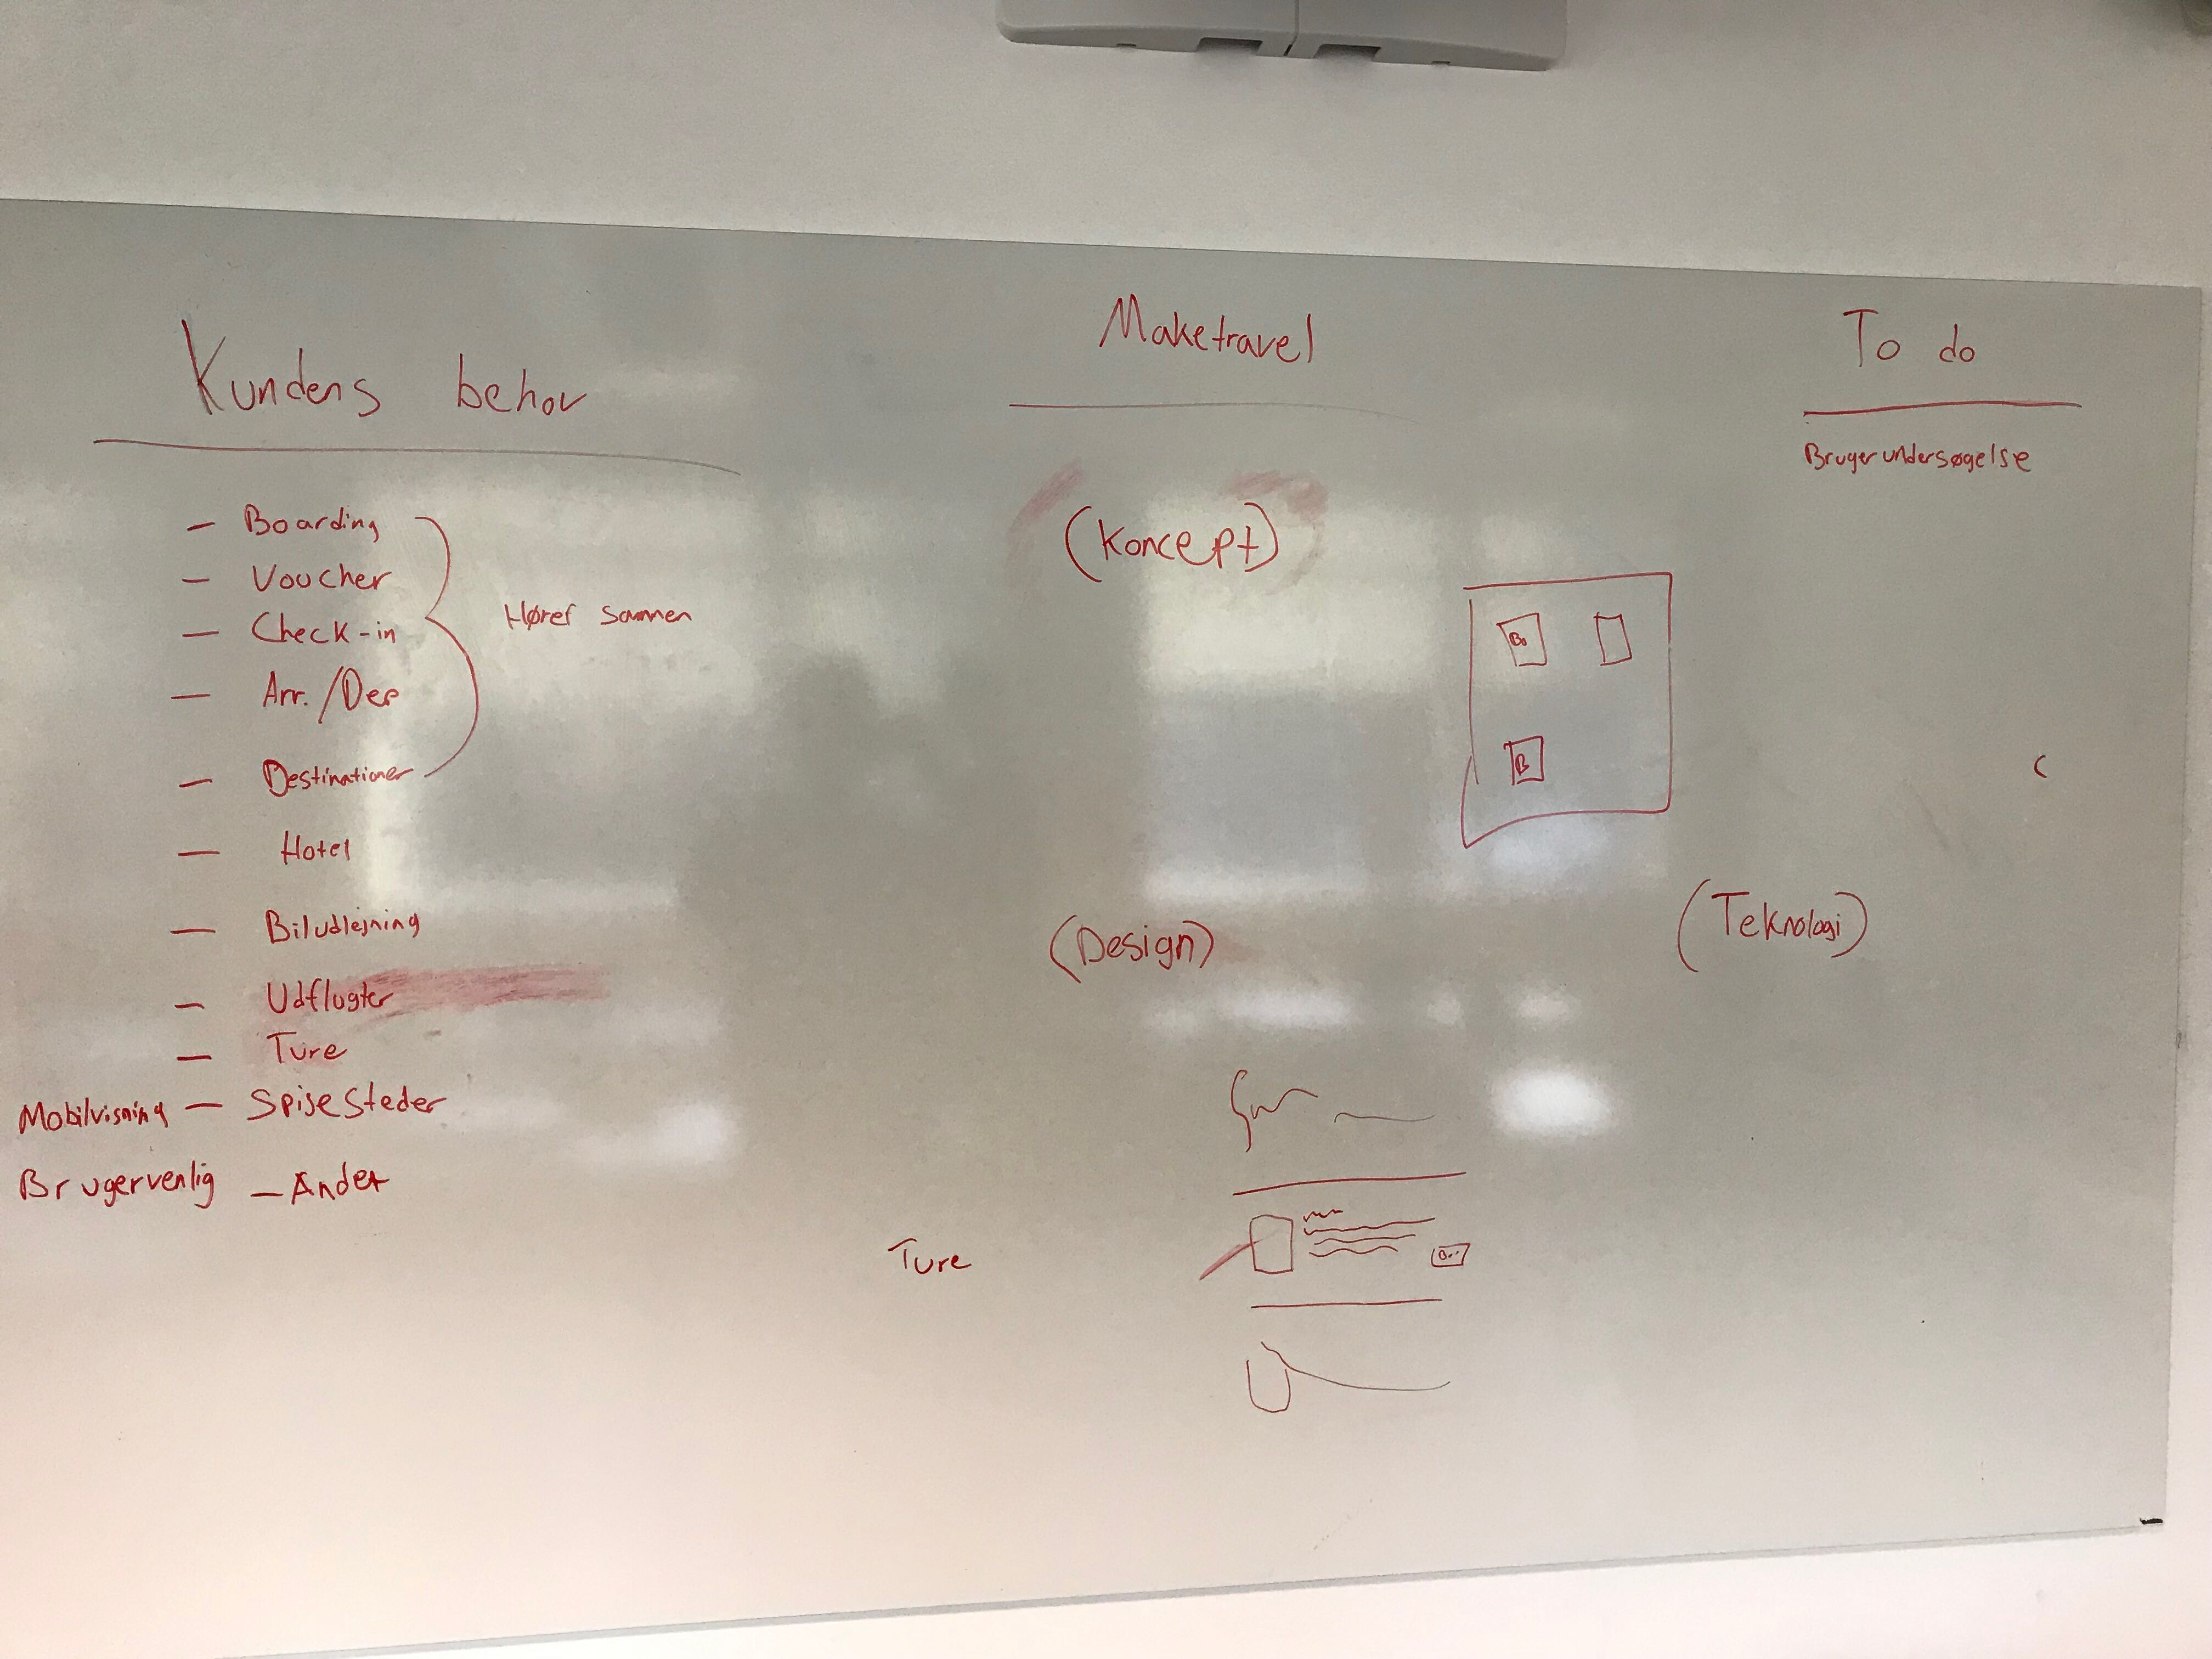 Kundens behov
- Boarding
- Voucher
- Check-in
- Arr./Dep
- Destinationer
Hører sammen
- Hotel
- Biludlejning
- Udflugter
- Ture
Mobilvisning - Spisesteder
Brugervenlig - Andet
Maketravel
(Koncept)
Bo
B
(Design)
(Teknologi)
Ture
To do
Brugerundersøgelse